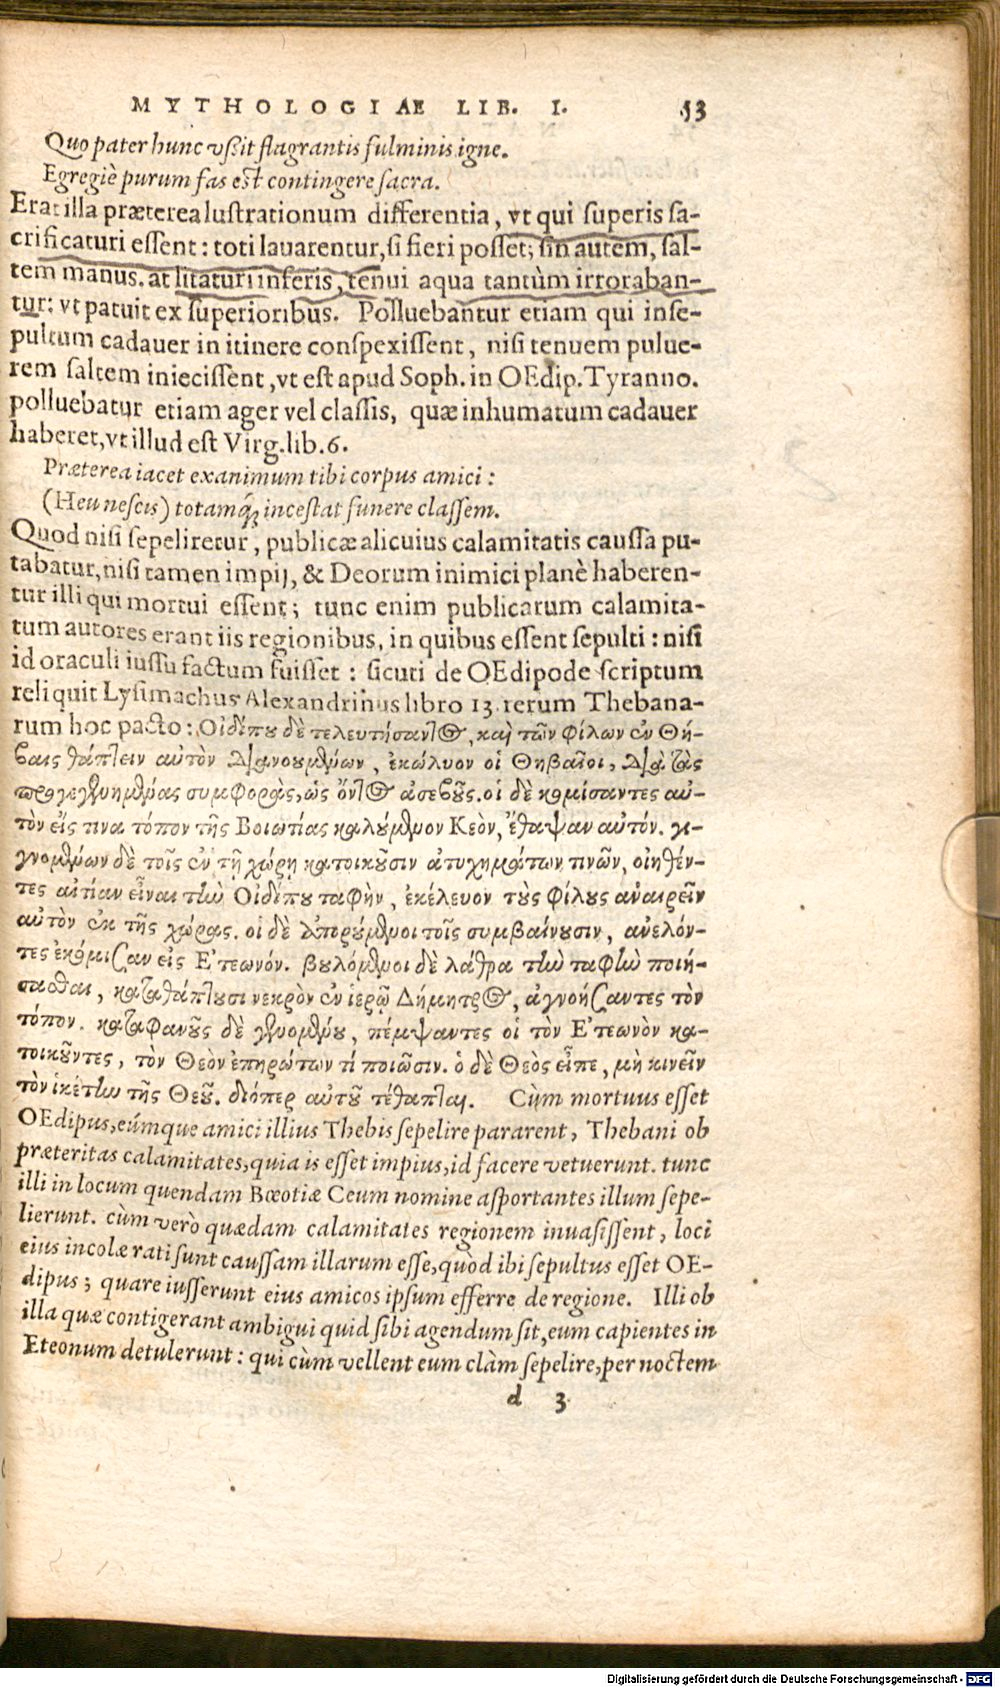 MYTHOLOGIÆ LIB. I. 53
Quo pater hunc vßit flagrantis fulminis igne.
Egregiè purum fas est contingere sacra.
Erat illa præterea lustrationum differentia, vt qui superis sa-
crificaturi essent: toti lauarentur, si fieri posset; sin autem, sal-
tem manus. at litaturi inferis, tenui aqua tantùm irroraban-
tur: vt patuit ex superioribus. Polluebantur etiam qui inse-
pultum cadauer in itinere conspexissent, nisi tenuem pulue-
rem saltem iniecissent, vt est apud Soph. in OEdip. Tyranno.
polluebatur etiam ager vel classis, quæ inhumatum cadauer
haberet, vt illud est Virg. lib. 6.
Præterea iacet exanimum tibi corpus amici:
(Heu nescis) totamq́; incestat funere classem.
Quod nisi sepeliretur, publicæ alicuius calamitatis caussa pu-
tabatur, nisi tamen impij, & Deorum inimici planè haberen-
tur illi qui mortui essent; tunc enim publicarum calamita-
tum autores erant iis regionibus, in quibus essent sepulti: nisi
id oraculi iussu factum fuisset: sicuti de OEdipode scriptum
reliquit Lysimachus Alexandrinus libro 13. rerum Thebana-
rum hoc pacto: Οἰδίπου δὲ τελευτήσαντος, καὶ τῶν φίλων ἐν Θή-
βαις θάπτειν αὐτὸν διανουμένων, ἐκώλυον οἱ Θηβαῖοι, διὰ τὰς
προγεγενημένας συμφορὰς, ὡς ὄντος ἀσεβοῦς. οἱ δὲ κομίσαντες αὐ-
τὸν εἴς τινα τόπον τῆς Βοιωτίας καλούμενον Κεὸν, ἔθαψαν αὐτόν. γι-
γνομένων δὲ τοῖς ἐν τῇ χώρῃ κατοικοῦσιν ἀτυχημάτων τινῶν, οἰηθέν-
τες αἰτίαν εἶναι τὴν Οἰδίπου ταφὴν, ἐκέλευον τοὺς φίλους ἀναιρεῖν
αὐτὸν ἐκ τῆς χώρας. οἱ δὲ ἀπορούμενοι τοῖς συμβαίνουσιν, ἀνελόν-
τες ἐκόμισαν εἰς Ἐτεωνόν. βουλόμενοι δὲ λάθρα τὴν ταφὴν ποιή-
σασθαι, καταθάπτουσι νεκρὸν ἐν ἱερῷ Δήμητρος, ἀγνοήσαντες τὸν
τόπον. καταφανοῦς δὲ γενομένου, πέμψαντες οἱ τὸν Ἐτεωνὸν κα-
τοικοῦντες, τὸν Θεὸν ἐπηρώτων τί ποιῶσιν. ὁ δὲ Θεὸς εἶπε, μὴ κινεῖν
τὸν ἱκέτην τῆς Θεοῦ. διόπερ αὐτοῦ τέθαπται. Cùm mortuus esset
OEdipus, eúmque amici illius Thebis sepelire pararent, Thebani ob
præteritas calamitates, quia is esset impius, id facere vetuerunt. tunc
illi in locum quendam Bœotiæ Ceum nomine asportantes illum sepe-
lierunt. cùm verò quædam calamitates regionem inuasissent, loci
eius incolæ rati sunt caussam illarum esse, quod ibi sepultus esset OE-
dipus; quare iusserunt eius amicos ipsum efferre de regione. Illi ob
illa quæ contigerant ambigui quid sibi agendum sit, eum capientes in
Eteonum detulerunt: qui cùm vellent eum clàm sepelire, per noctem
d 3
Digitalisierung gefördert durch die Deutsche Forschungsgemeinschaft - DFG